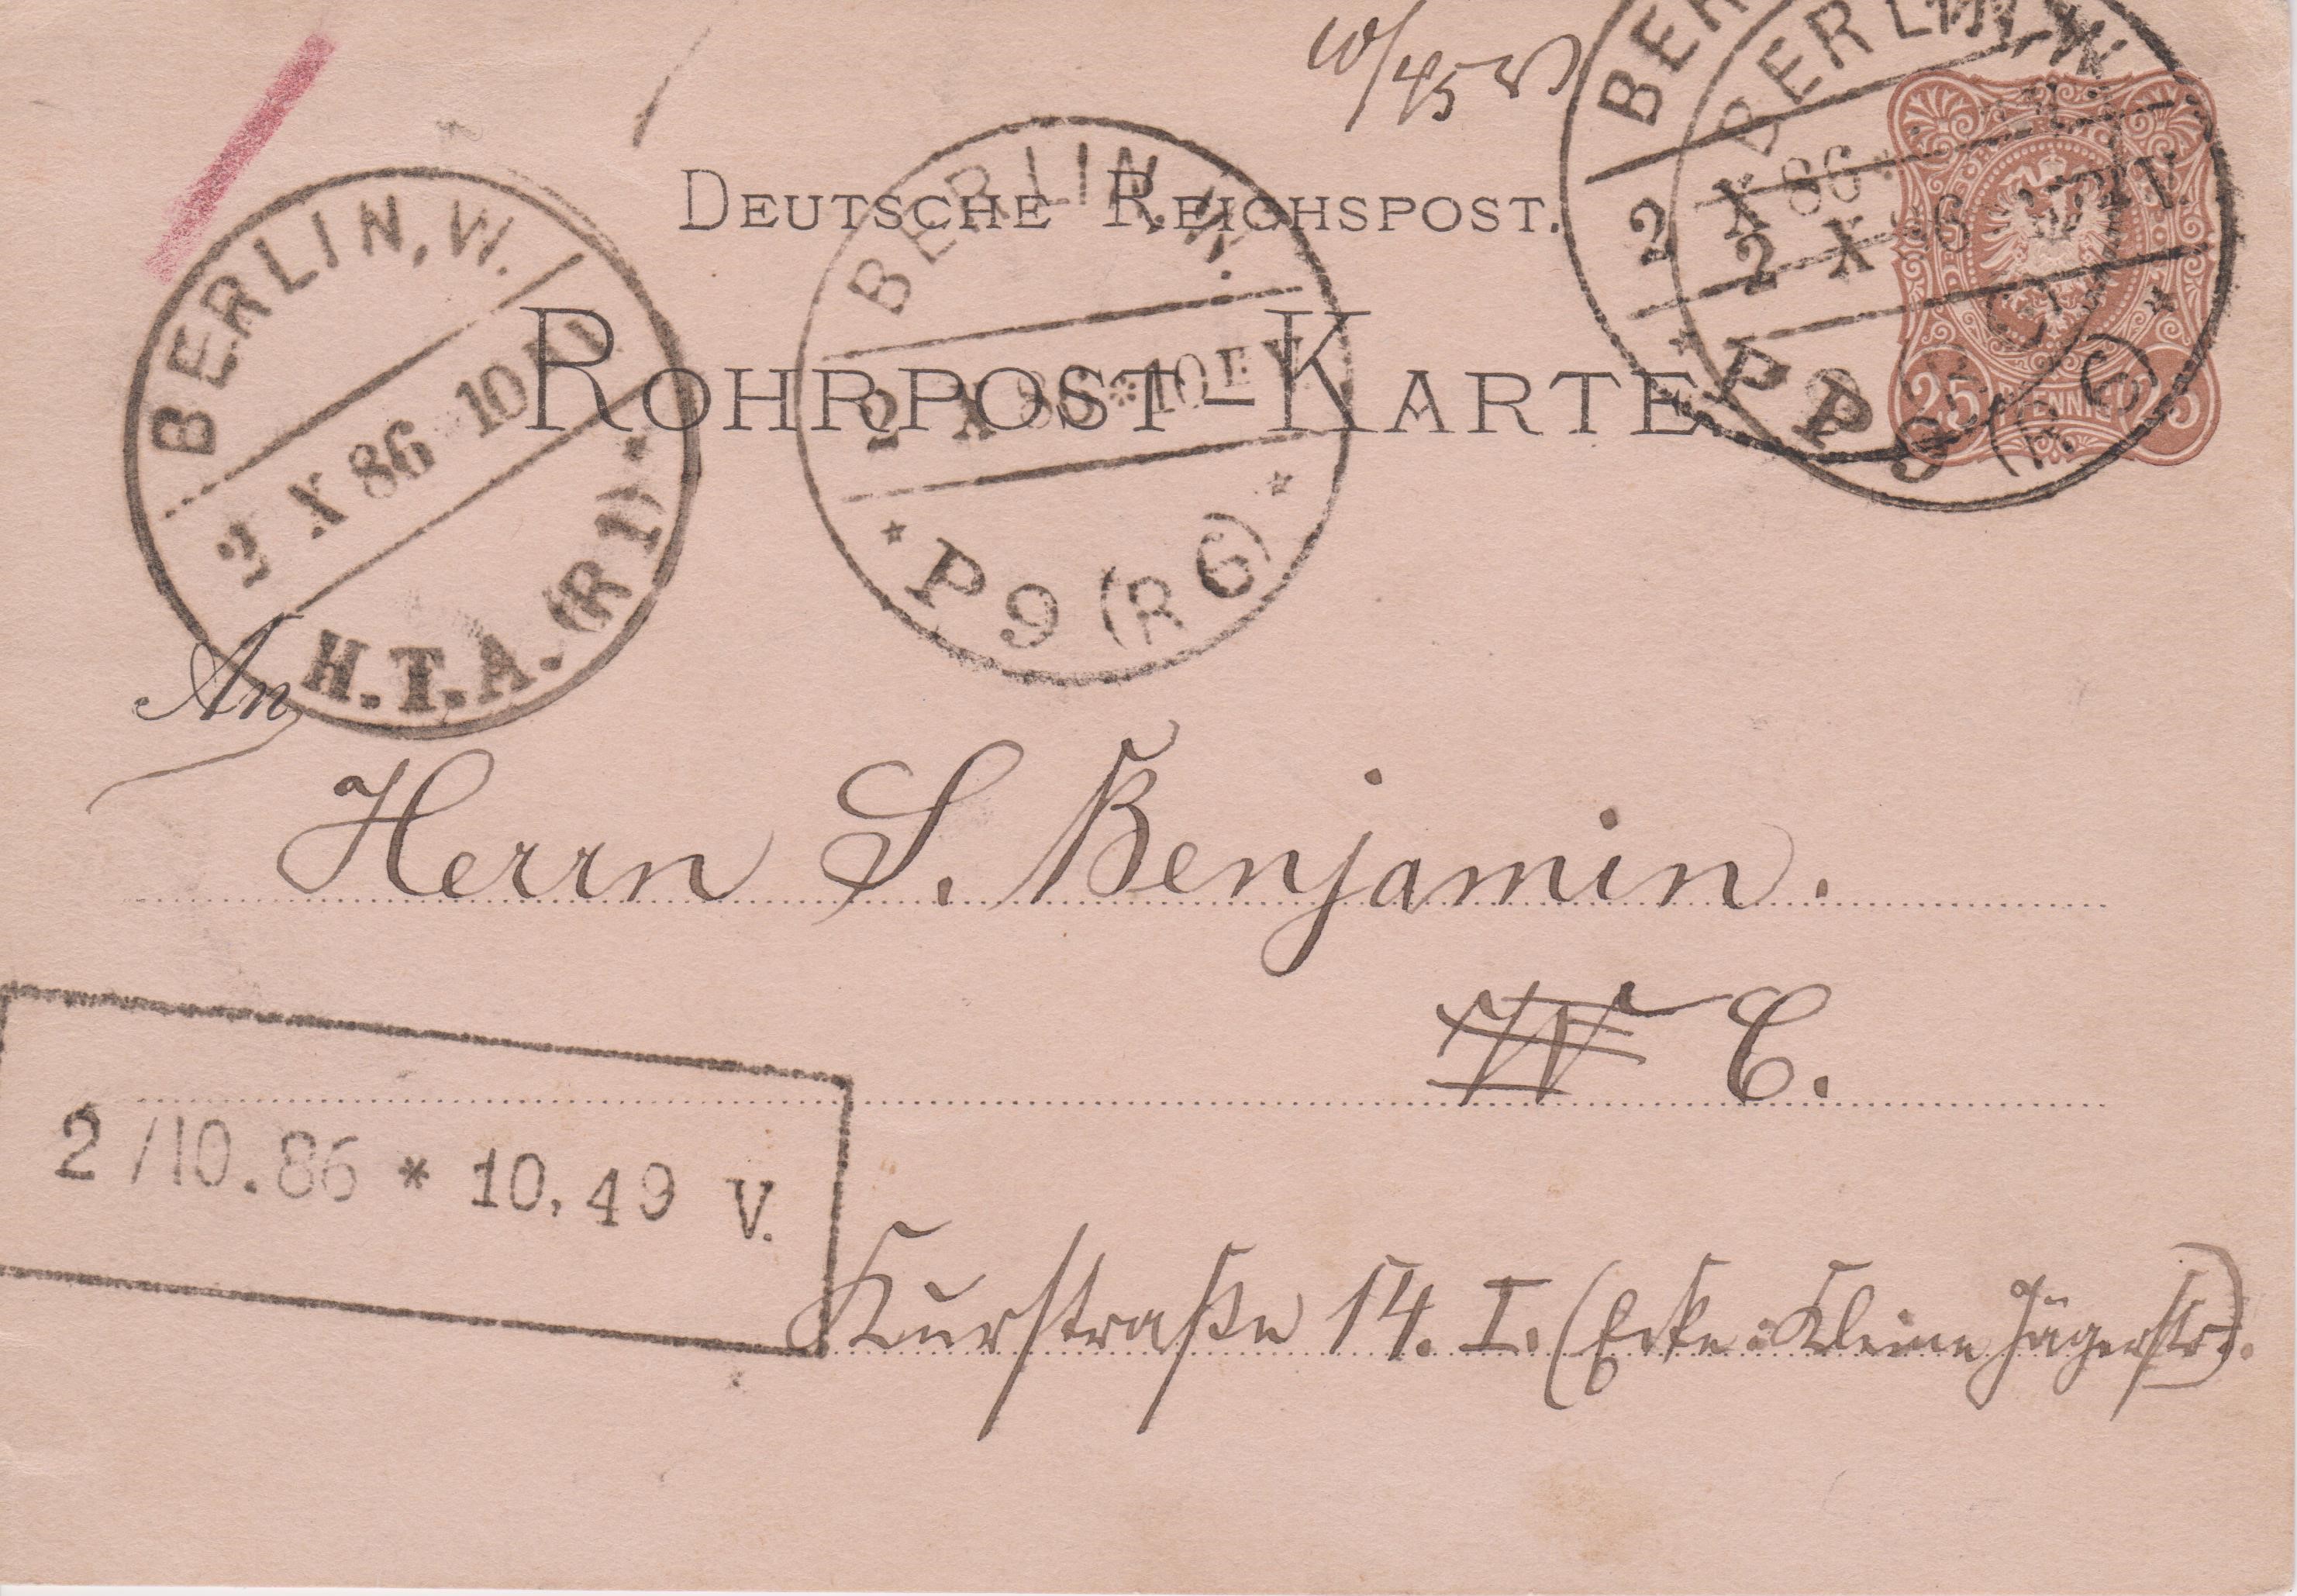 10/45 V
DEUTSCHE REICHSPOST.
ROHRPOST-KARTE
25 PFENNIG 25
BERLIN, W.
2 X 86 10
H.T.A. (R 1)
BERLIN, W.
2 X 86 * 10 V
P 9 (R 6)
BER
2 X 86
P 9
BERLIN, W.
2 X 86 V.
P 9 (R 6)
An
Herrn S. Benjamin.
W C.
2/10.86 * 10.49 V.
Kurstraße 14. I. (Ecke Kleine Jägerstr.).